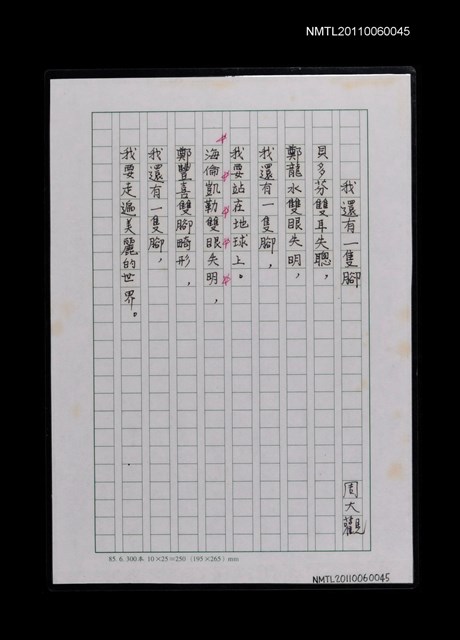 NMTL20110060045
我還有一隻腳
周大觀
貝多芬雙耳失聰，
鄭龍水雙眼失明，
我還有一隻腳，
我要站在地球上。
海倫凱勒雙眼失明，
鄭豐喜雙腳畸形，
我還有一隻腳，
我要走遍美麗的世界。
85. 6. 300本 10×25=250 (195×265) mm
NMTL20110060045